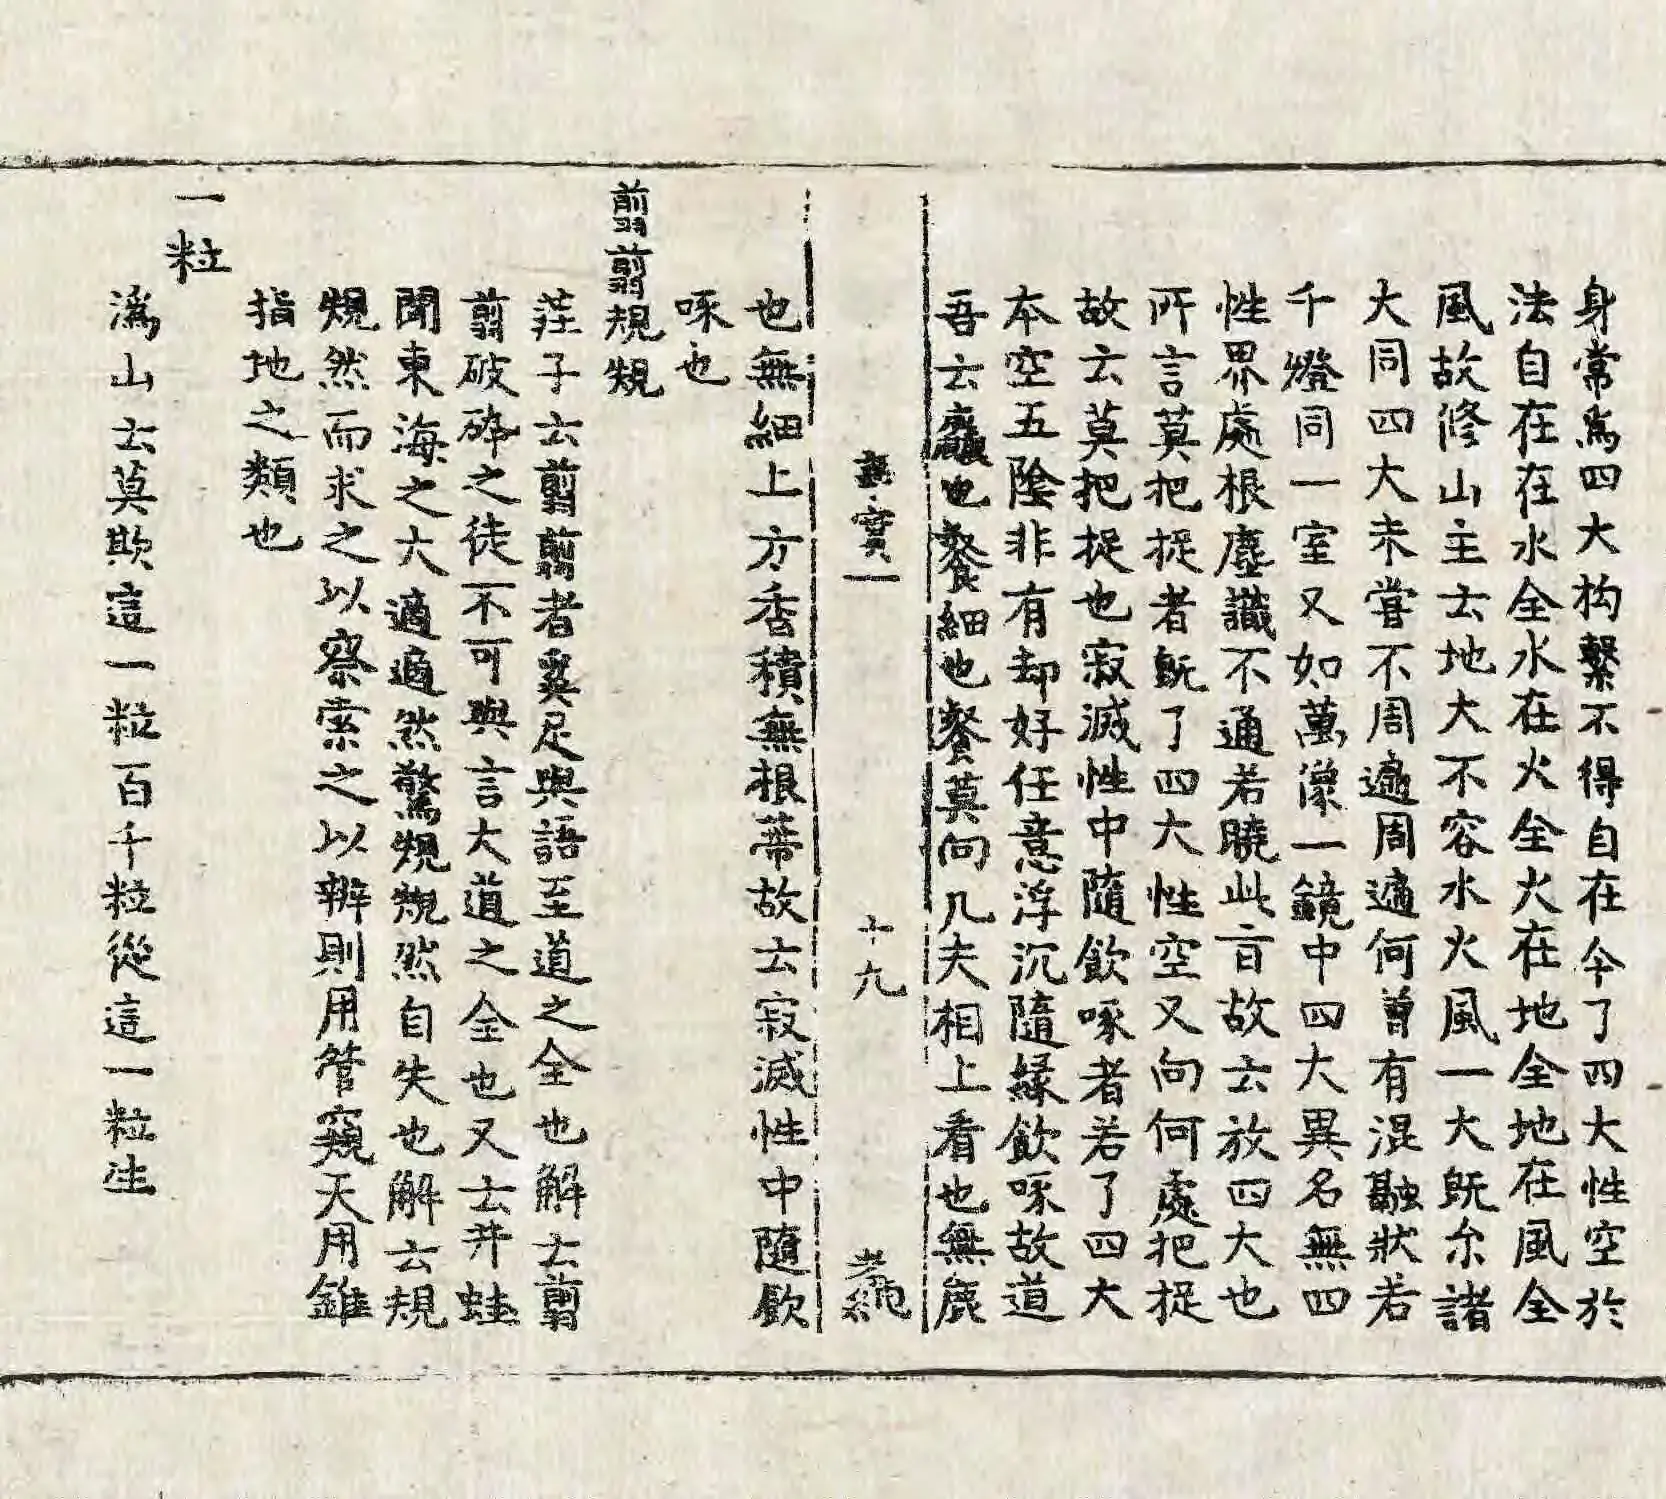 身常爲四大构繫不得自在今了四大性空於
法自在在水全水在火全火在地全地在風全
風故修山主云地大不容水火風一大旣尒諸
大同四大未甞不周遍周遍何曾有混融狀若
千燈同一室又如萬像一鏡中四大異名無四
性界處根塵識不通若曉此言故云放四大也
所言莫把捉者旣了四大性空又向何處把捉
故云莫把捉也寂滅性中隨飲啄者若了四大
本空五陰非有却好任意浮沉隨緣飲啄故道
吾云麤也飡細也飡莫向凡夫相上看也無麁
事實一 十九
也無細上方香積無根蔕故云寂滅性中隨飲
啄也
翦翦規規
莊子云翦翦者奚足與語至道之全也解云翦
翦破碎之徒不可與言大道之全也又云井蛙
聞東海之大適適然驚規規然自失也解云規
規然而求之以察索之以辨則用管窺天用錐
指地之類也
一粒
潙山云莫欺這一粒百千粒從這一粒生